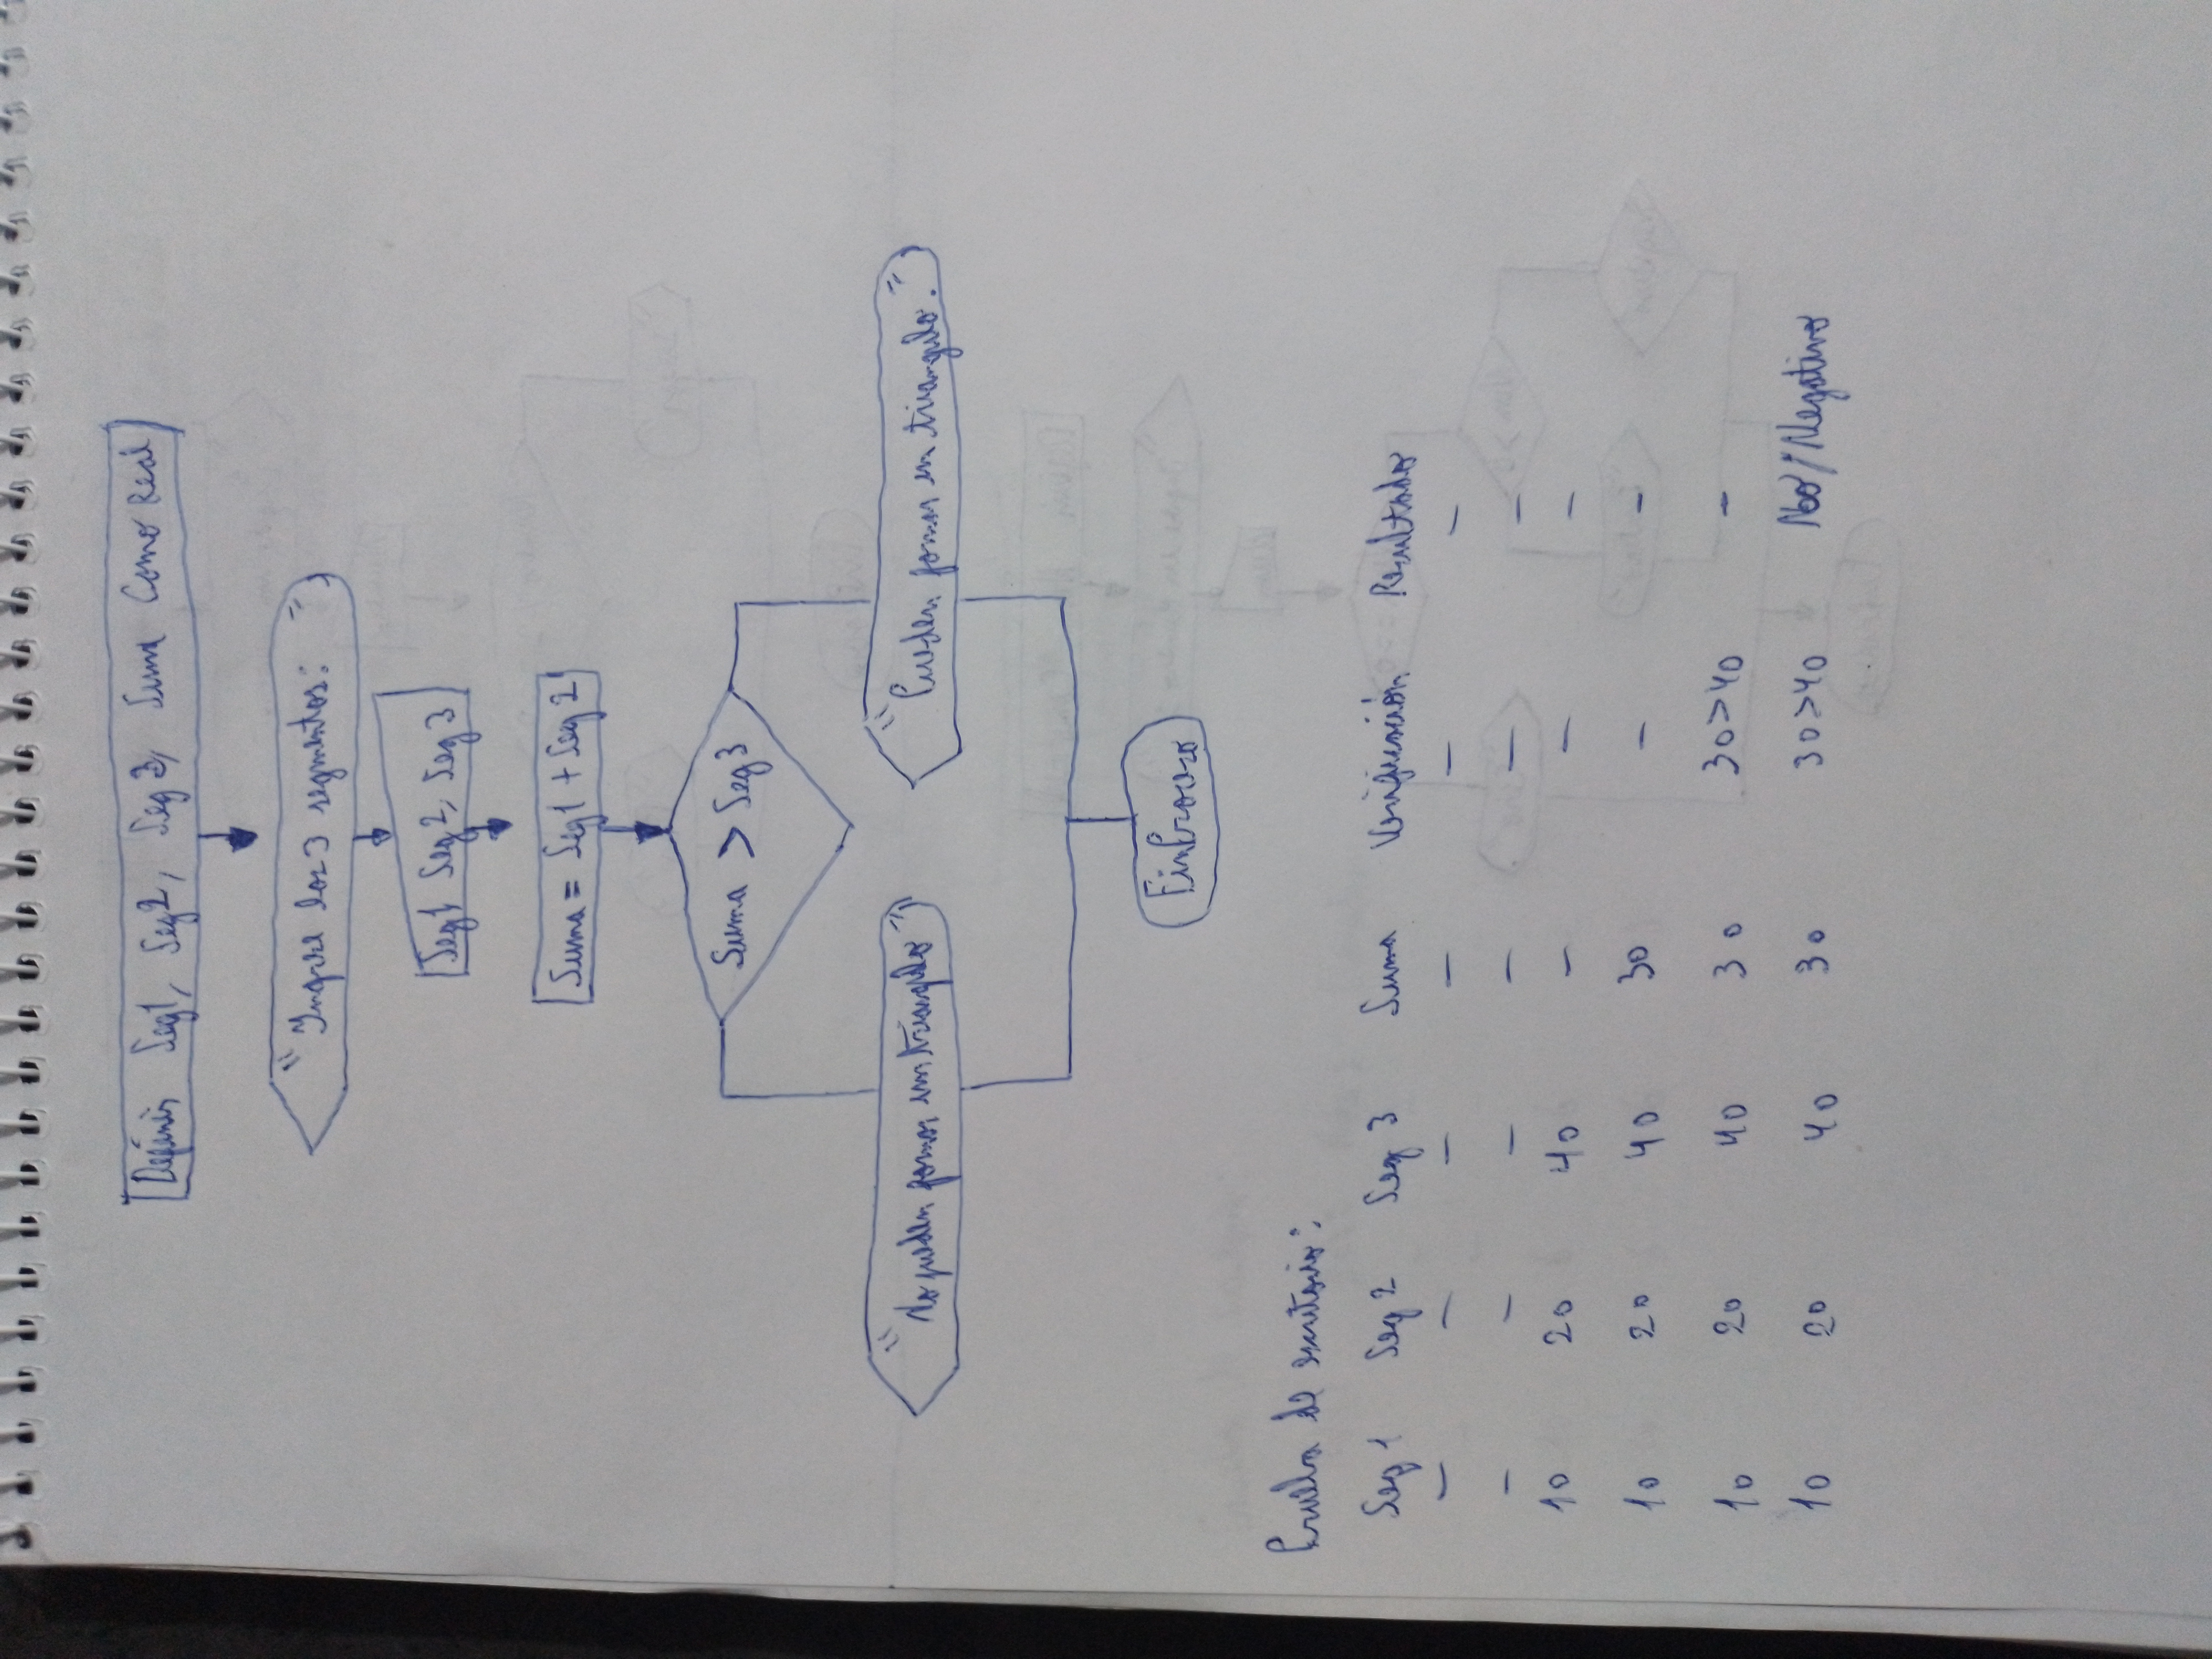 Definir Seg1, Seg2, Seg3, Suma Como Real
"Ingrese los 3 segmentos: "
Seg1, Seg2, Seg3
Suma = Seg1 + Seg2
Suma > Seg3
"No pueden formar un triangulo"
"Pueden formar un triangulo."
FinProceso
Prueba de escritorio:
Seg1 Seg2 Seg3 Suma Verificación Resultado
— — — — — —
— — — — — —
10 20 40 — — —
10 20 40 30 — —
10 20 40 30 30>40 —
10 20 40 30 30>40 No/Negativo